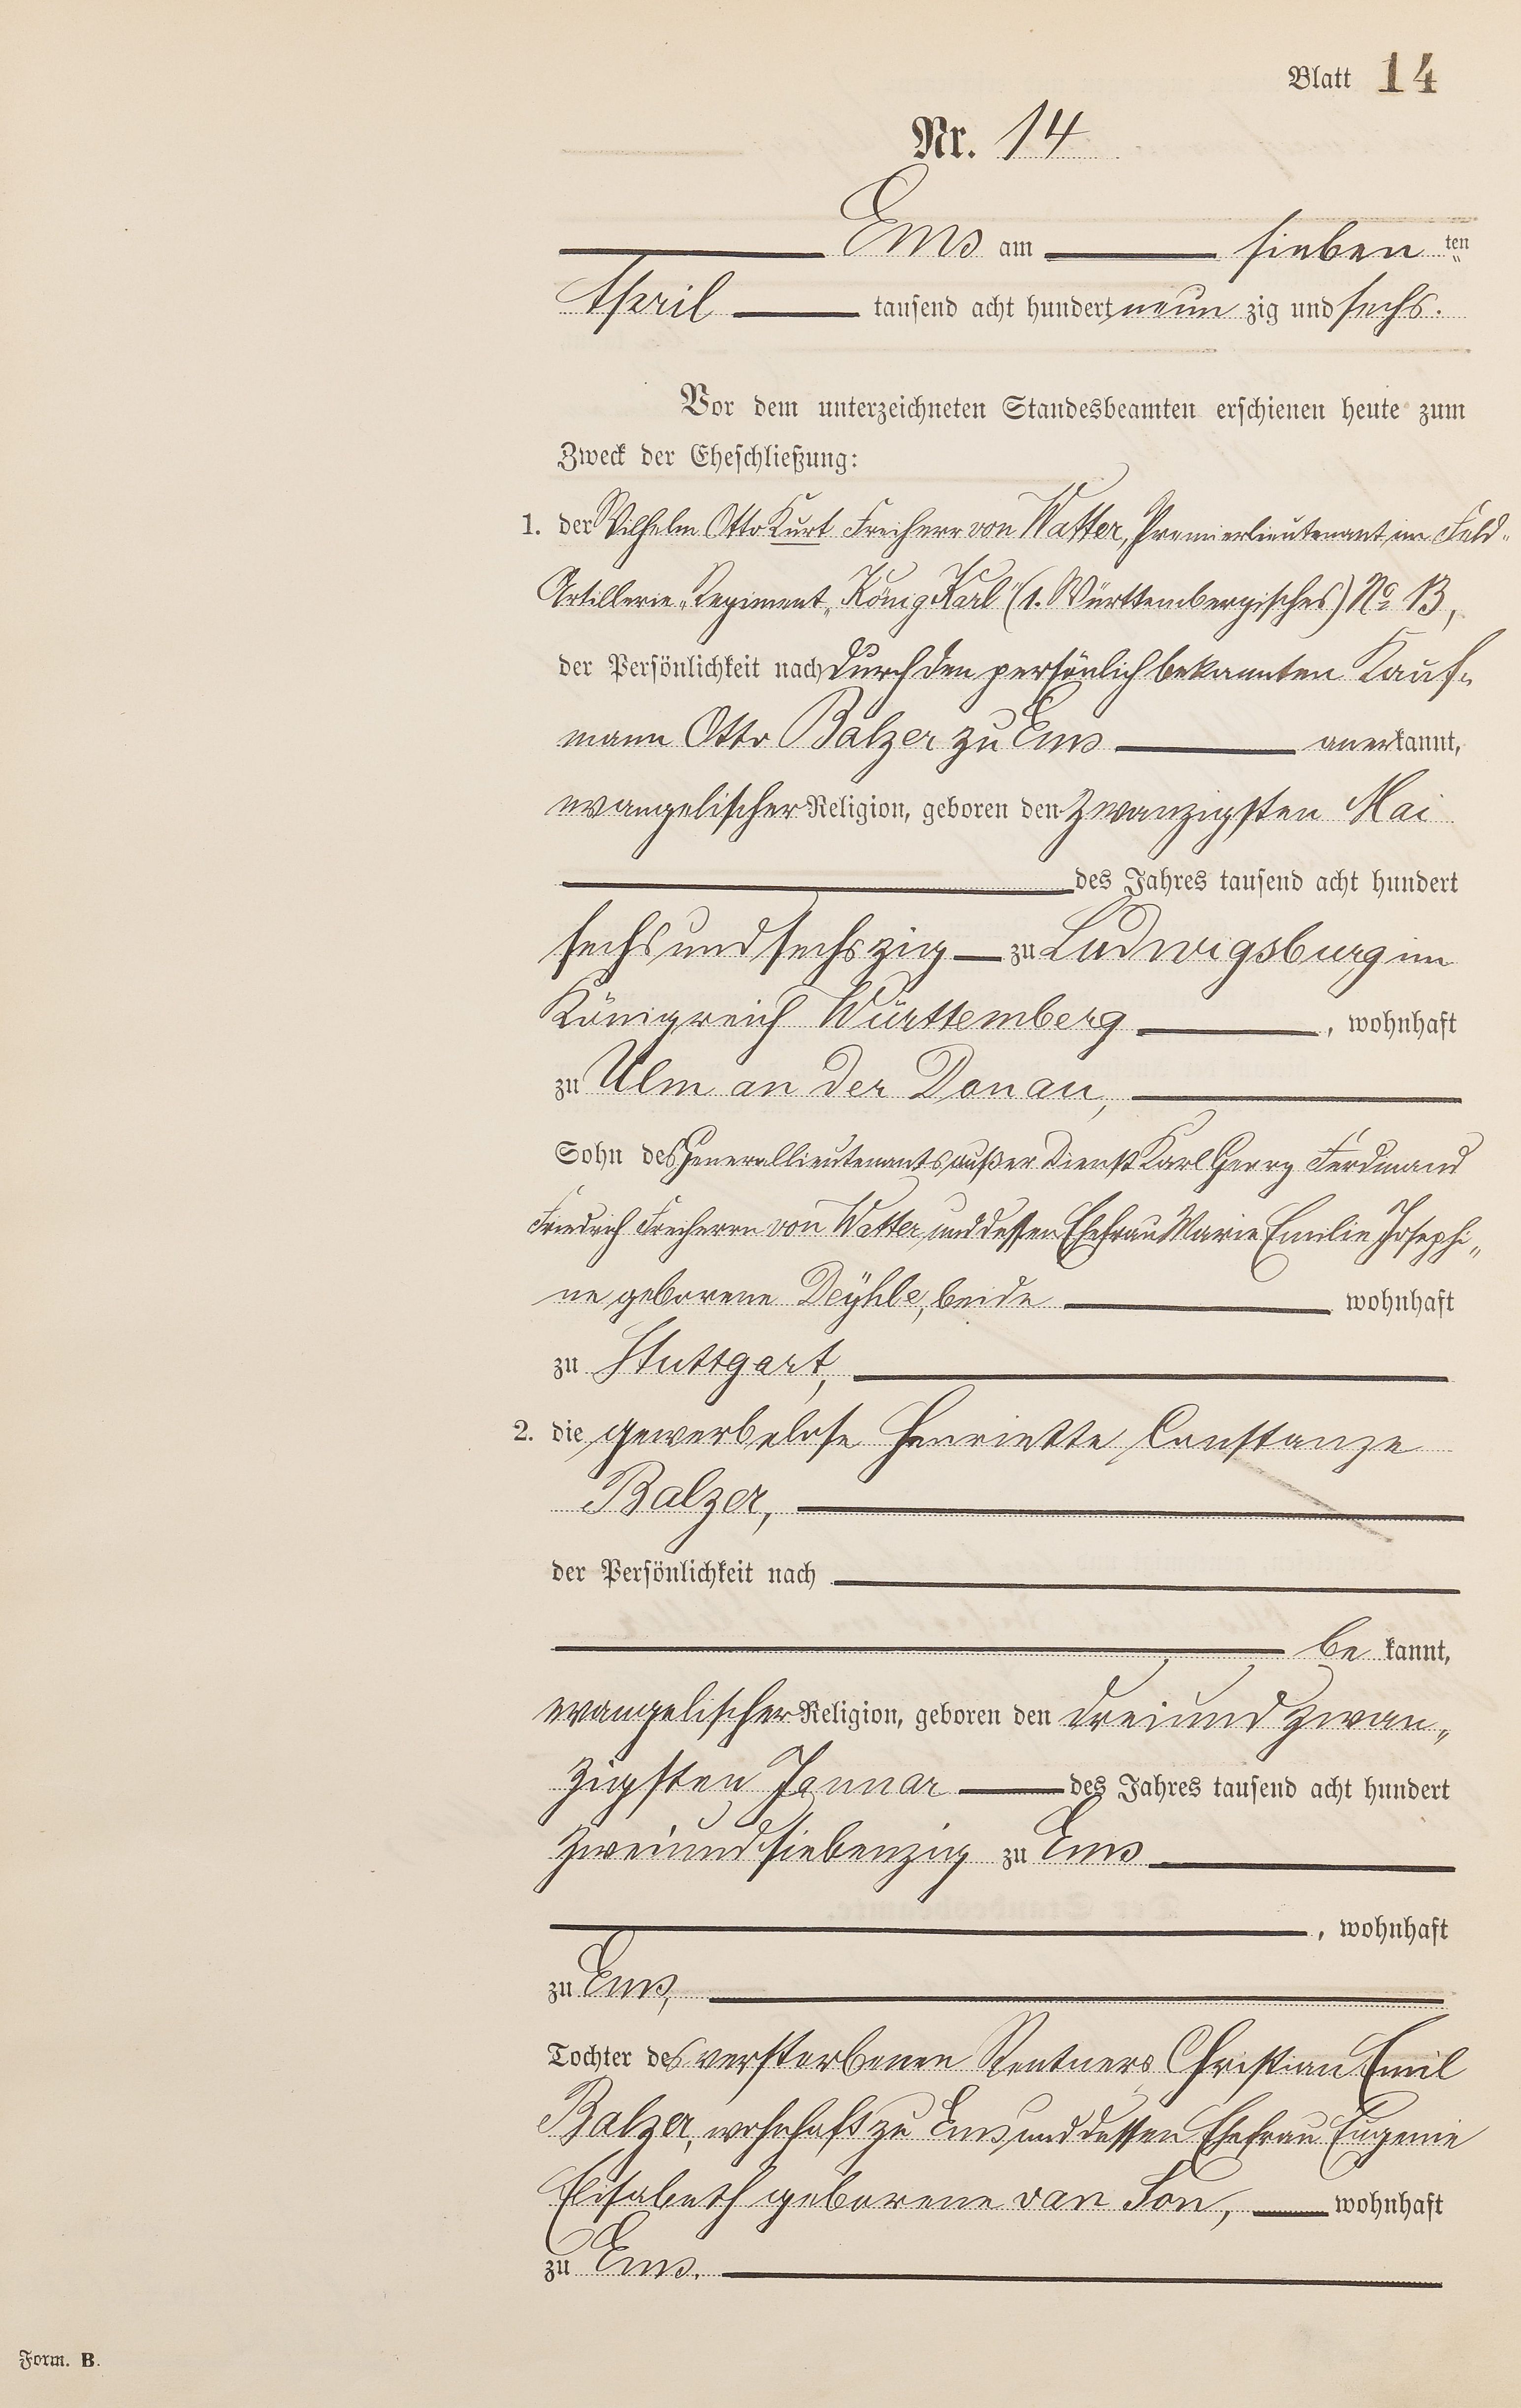 Blatt 14
Nr. 14
Ems am sieben ten
April tausend acht hundert neun zig und sechs.
Vor dem unterzeichneten Standesbeamten erschienen heute zum
Zweck der Eheschließung:
1. der Wilhelm Otto Kurt Freiherr von Watter, Premierlieutenant im Feld-
Artillerie-Regiment „König Karl" (1. Württembergisches) No 13,
der Persönlichkeit nach durch den persönlich bekannten Kauf-
mann Otto Balzer zu Ems anerkannt,
evangelischer Religion, geboren den zwanzigsten Mai
des Jahres tausend acht hundert
sechs und sechszig zu Ludwigsburg im
Königreich Württemberg, wohnhaft
zu Ulm an der Donau,
Sohn des Generallieutenants außer Dienst Karl Georg Ferdinand
Friedrich Freiherrn von Watter, und dessen Ehefrau Marie Emilie Josephi-
ne geborene Deÿhle, beide wohnhaft
zu Stuttgart,
2. die gewerbelose Henriette Constanze
Balzer,
der Persönlichkeit nach
be kannt,
evangelischer Religion, geboren den dreiundzwan-
zigsten Januar des Jahres tausend acht hundert
zweiundsiebenzig zu Ems
, wohnhaft
zu Ems,
Tochter des verstorbenen Rentners Christian Emil
Balzer, wohnhaft zu Ems, und dessen Ehefrau Eugenie
Elisabeth geborene van Son, wohnhaft
zu Ems.
Form. B.